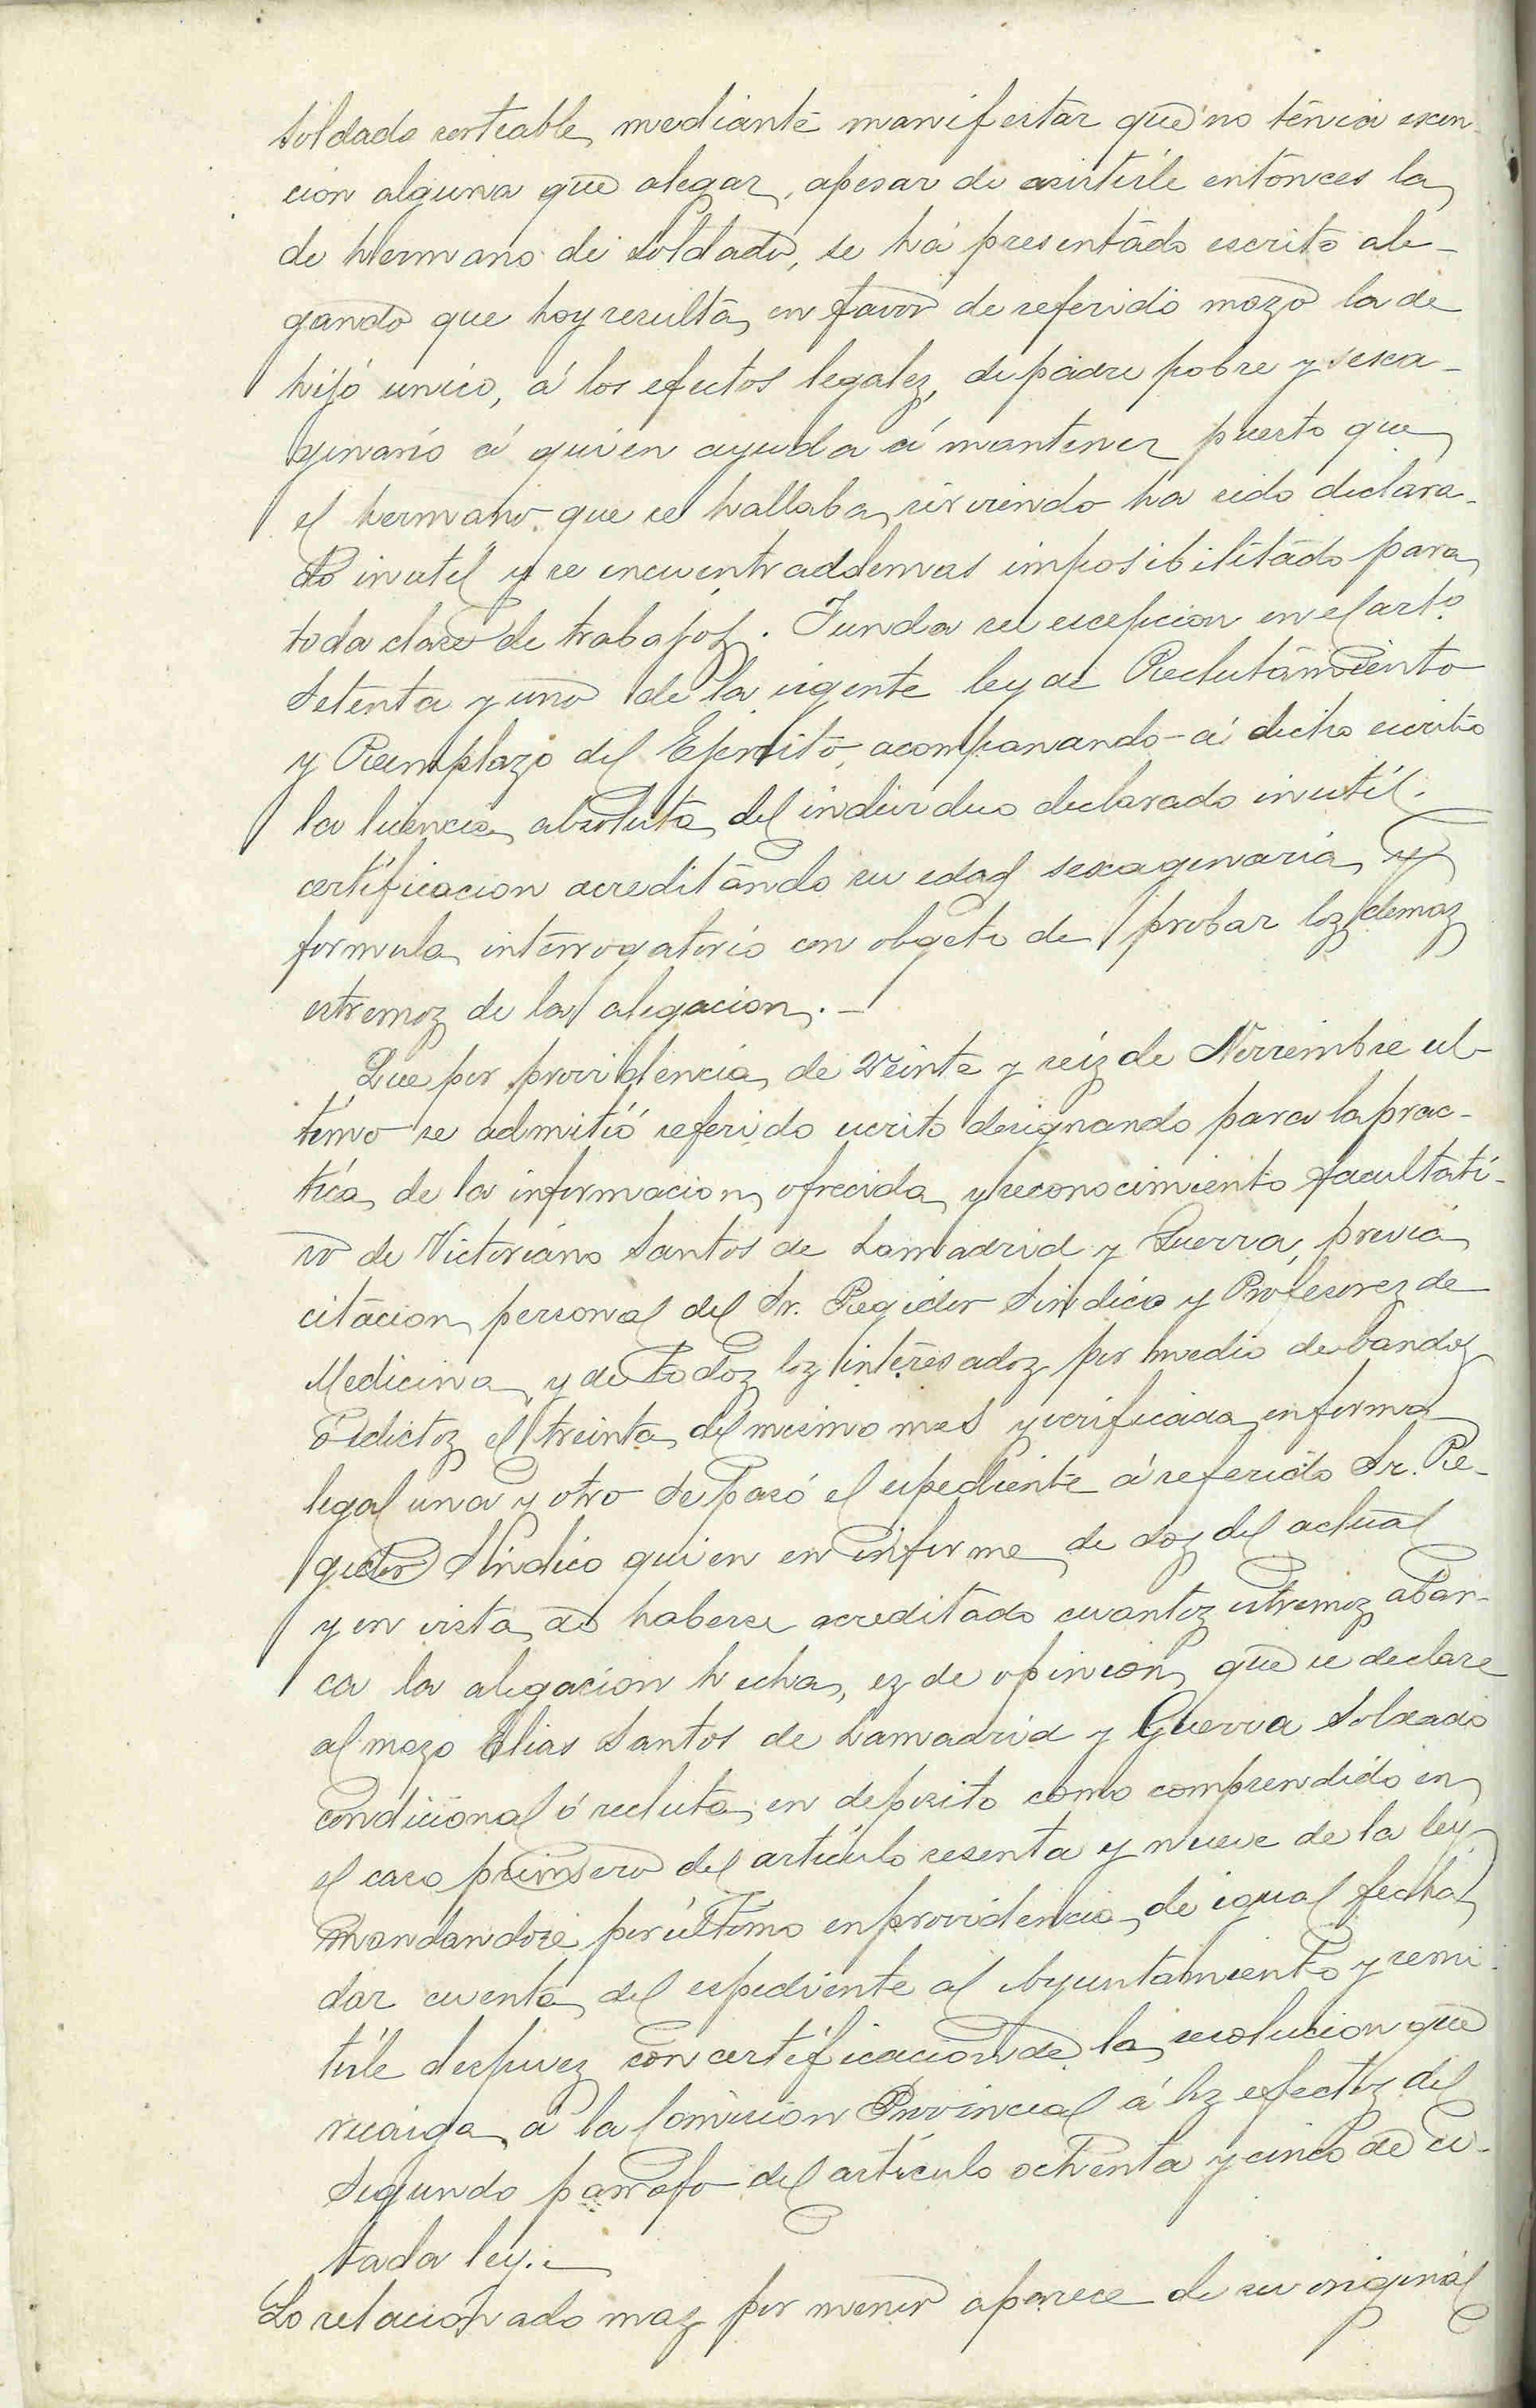 soldado sorteable, mediante manifestar que no tenia esen-
cion alguna que alegar, apesar de asistirle entonces la
de hermano de soldado, se há presentado escrito ale-
gando que hoy resulta en favor de referido mozo la de
hijo unico, á los efectos legalez, de padre pobre y sexa-
genario á quien ayuda á mantener puesto que
el hermano que se hallaba sirviendo ha sido declara-
do inutil y se encuentra ademas imposibilitado para
toda clase de trabajoz. Funda su escepcion en el arto.
Setenta y uno de la vigente ley de Reclutamiento
y Reemplazo del Ejercito, acompanando á dicho escrito
la licencia absoluta del individuo declarado inutil.
certificacion acreditando su edad sexagenaria, y
formula interrogatorio con obgeto de probar loz demaz
estremoz de la alegacion.—
Que por providencia de veinte y seiz de Noviembre ul-
timo se admitió referido escrito designando para la prac-
tica de la informacion ofrecida y reconocimiento facultati-
vo de Victoriano Santos de Lamadrid y Guerra, previa
citacion personal del Sr. Regidor Sindico y Profesorez de
Medicina, y de todoz loz interesadoz por medio de bandoz
ó edictoz el treinta del mismo mes y verificada en forma
legal una y otro se pasó el espediente á referido Sr. Re-
gidor Sindico quien en informe de doz del actual
y en vista de haberse acreditado cuantoz estremoz abar-
ca la alegacion hecha, ez de opinion que se declare
al mozo Elias Santos de Lamadrid y Guerra Soldado
condicional ó recluta en deposito como comprendido en
el caso primero del articulo sesenta y nueve de la ley,
mandandose por último en providencia de igual fecha
dar cuenta del espediente al Ayuntamiento y remi-
tirle despuez con certificacion de la resolucion que
recaiga á la Comision Provincial á loz efectoz del
segundo parrafo del articulo ochenta y cinco de ci-
tada ley.—
Lo relacionado maz por menor aparece de su original